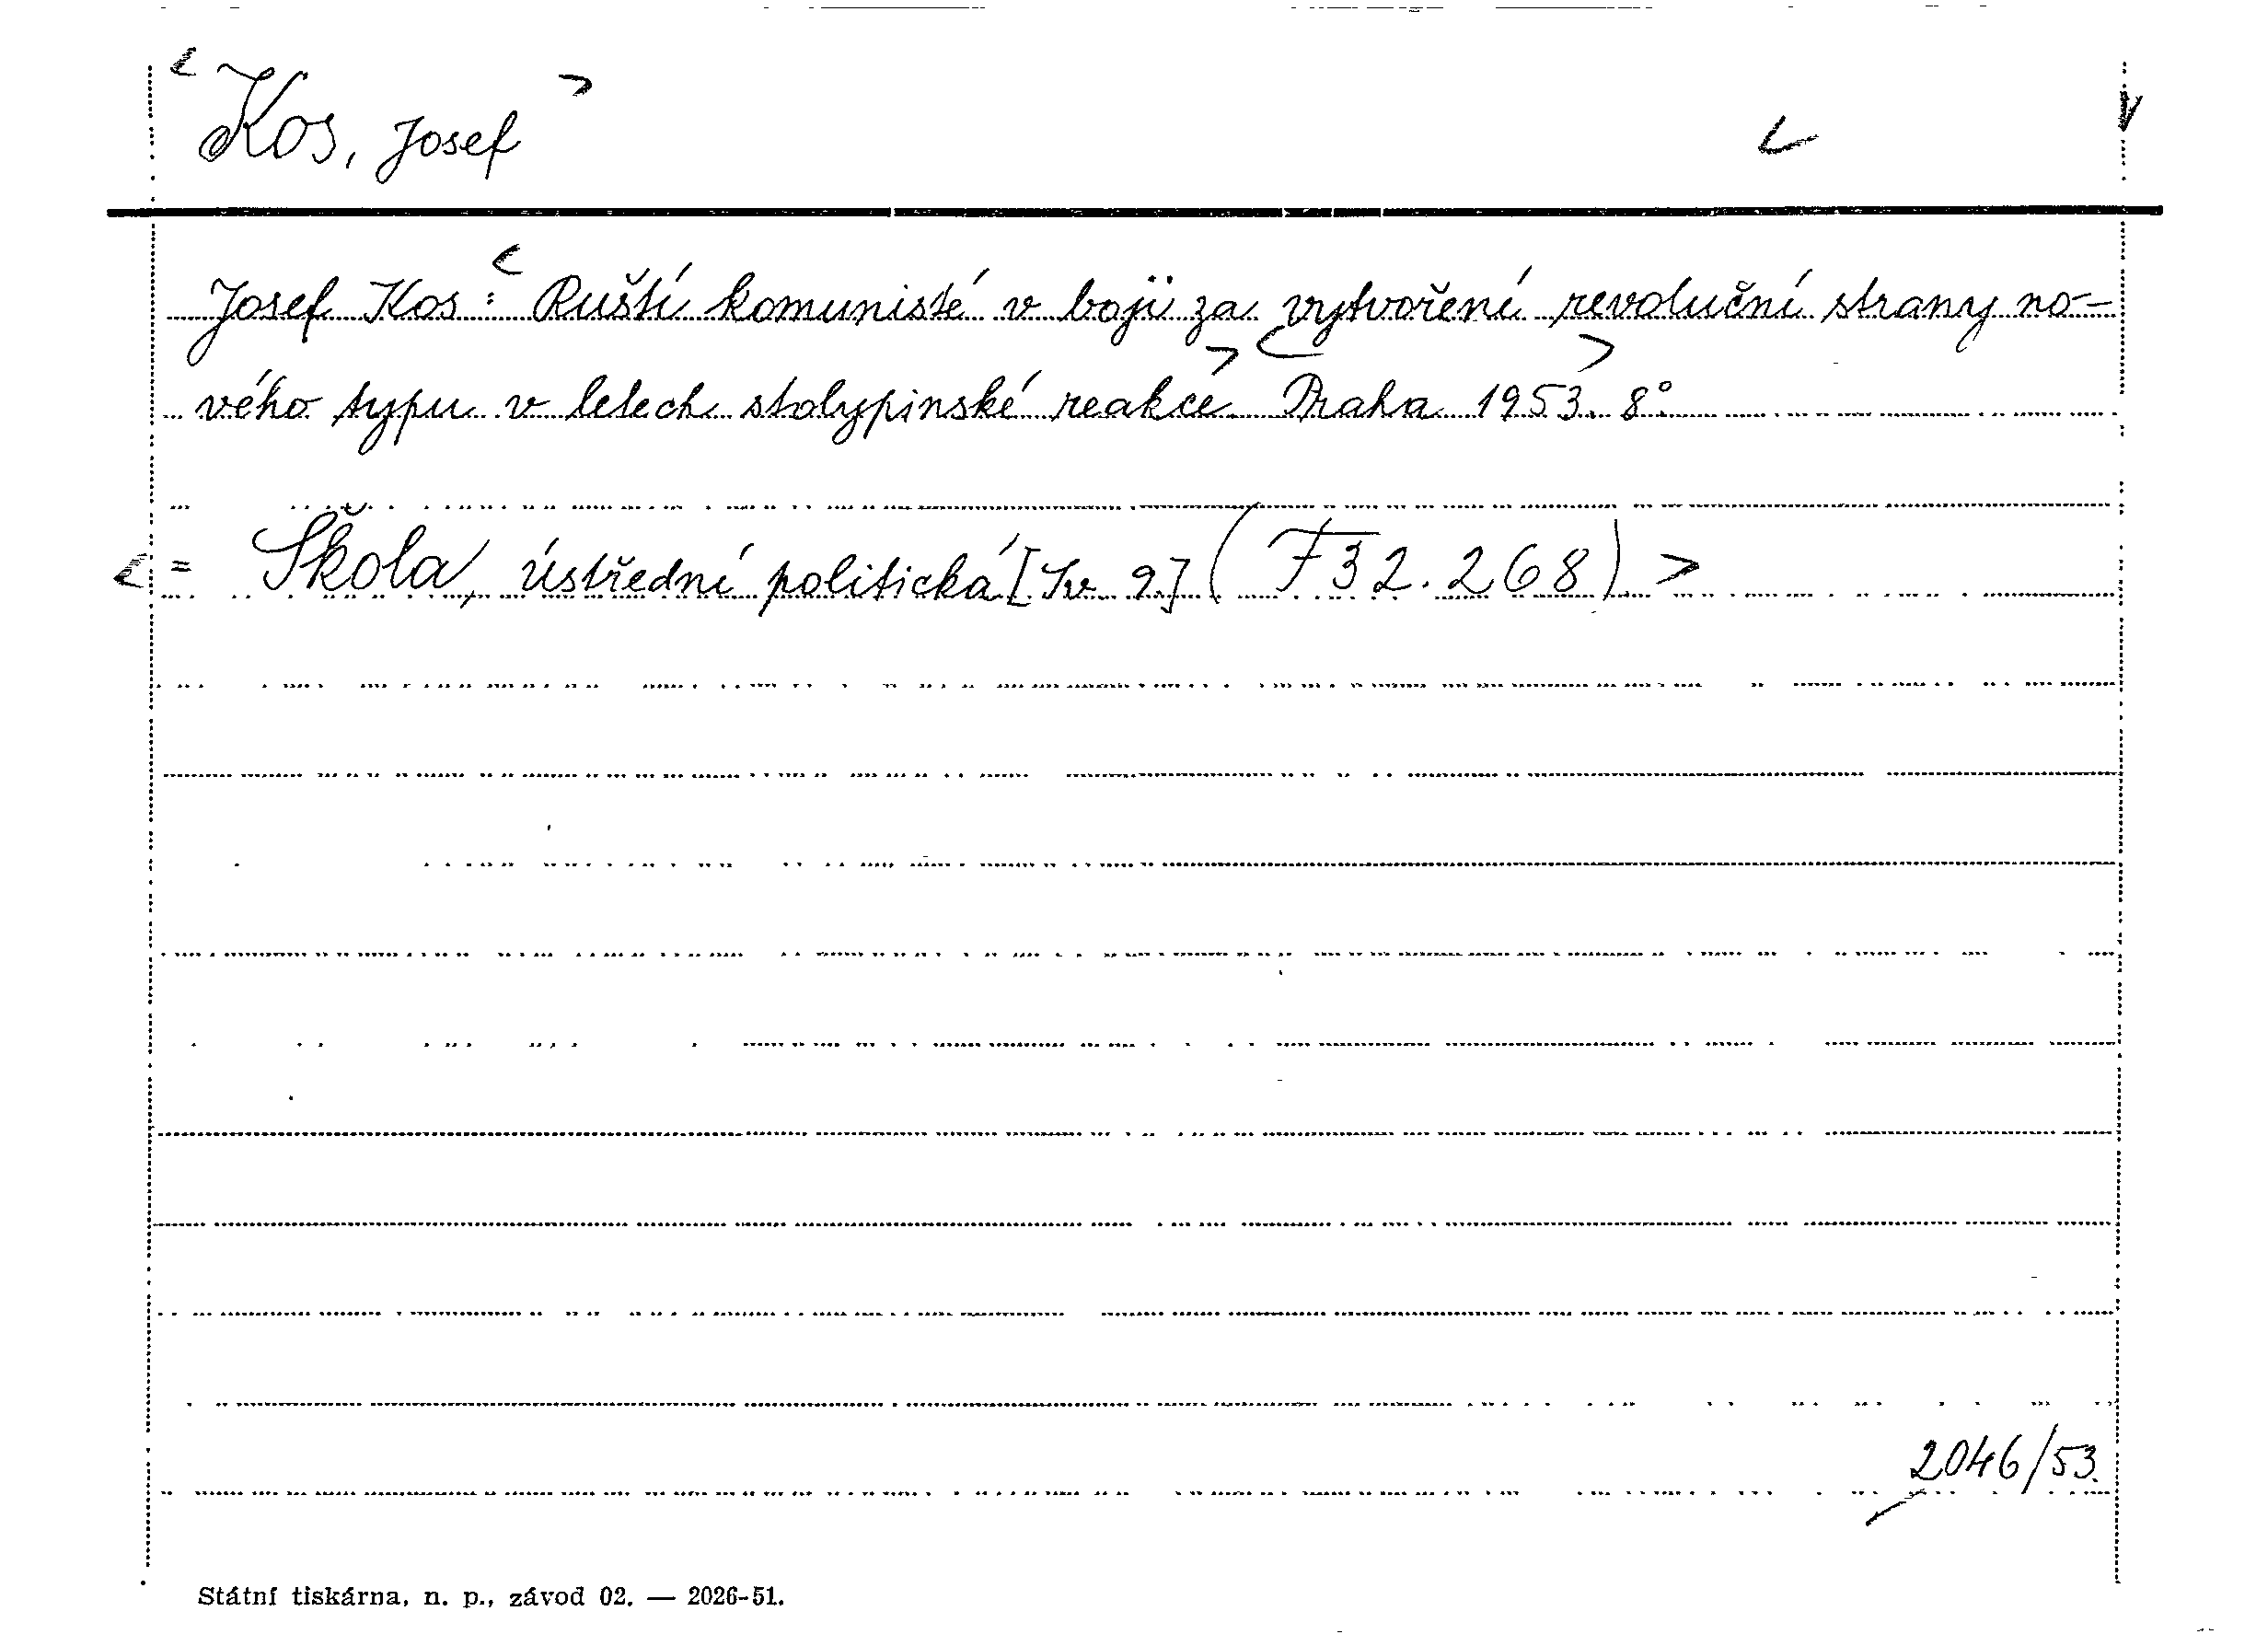 Kos, Josef
Josef Kos: Ruští komunisté v boji za vytvoření revoluční strany no-
vého typu v letech stolypinské reakce. Praha 1953. 8°
= Škola, ústřední politická [Sv 9.] (F 32.268)
2046/53.
Státní tiskárna, n. p., závod 02. — 2026-51.